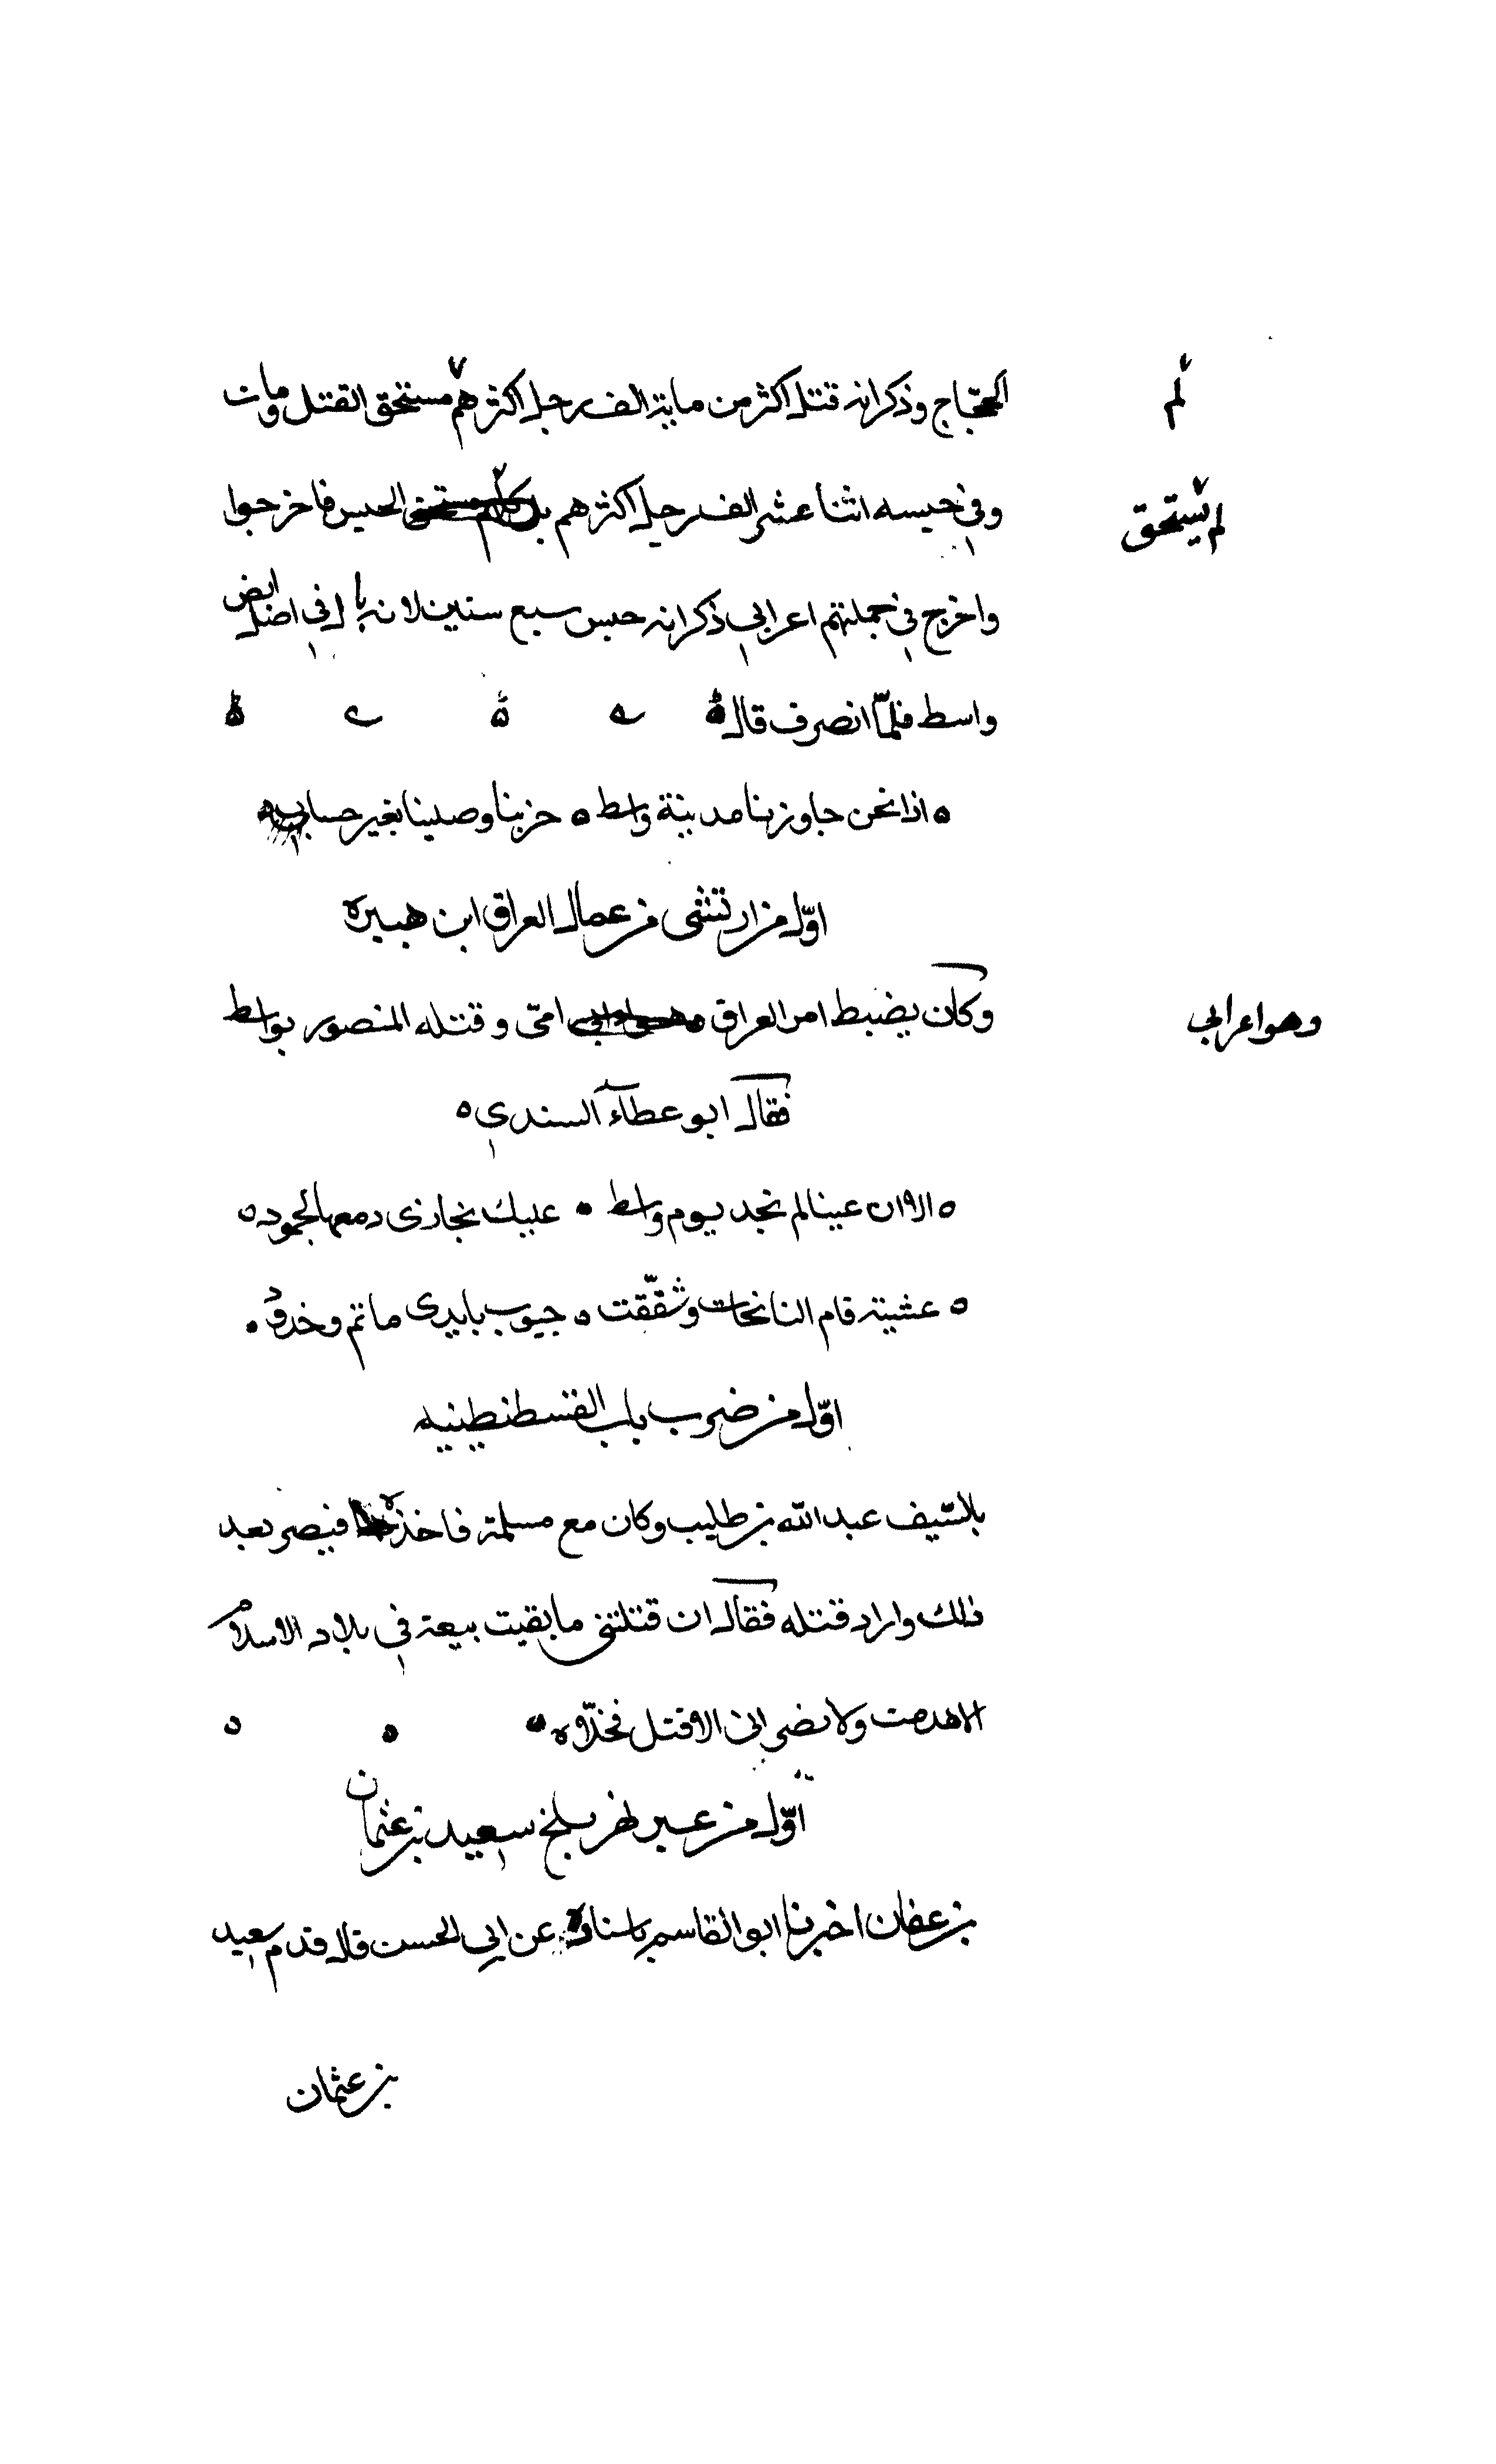 الحجاج وذكر انه قتل اكثر من ماية الف رجل اكثرهم مستحق القتل ومات
لم
وفي حبسه اثنا عشر الف رجل اكثرهم بل كلهم مستحق الحبس فاخرجوا
لم يستحق
واخرج في جملتهم اعرابي ذكر انه حبس سبع سنين لانه بال في اصل ربض
واسط فلمّا انصرف قال
اذا نحن جاوزنا مدينة واسط ه خرينا وصلينا بغير حساب
اوّل من ارتشى من عمال العراق ابن هبيره
وكان يضبط امر العراق امّي وقتله المنصور بواسط
وهو اعرابي
فقال ابو عطاء السندي ه
ه الا ان عينا لم تجد يوم واسط ه عليك بجارى دمعها لجمود ه
ه عشية قام النائحات وشقّقت ه جيوب بايدى ماتم وخدود
اوّل من ضرب باب القسطنطينيه
بالسّيف عبد الله بن طليب وكان مع مسلمة فاخذه قيصر بعد
ذلك واراد قتله فقال ان قتلتني ما بقيت بيعة في بلاد الاسلام
الا هدمت ولا نصراني الا قتل فخلّاه
اوّل من عبر نهر بلخ سعيد بن عثمان
بن عفان اخبرنا ابو القاسم باسناده عن ابي الحسن قال قدم سعيد
بن عثمان